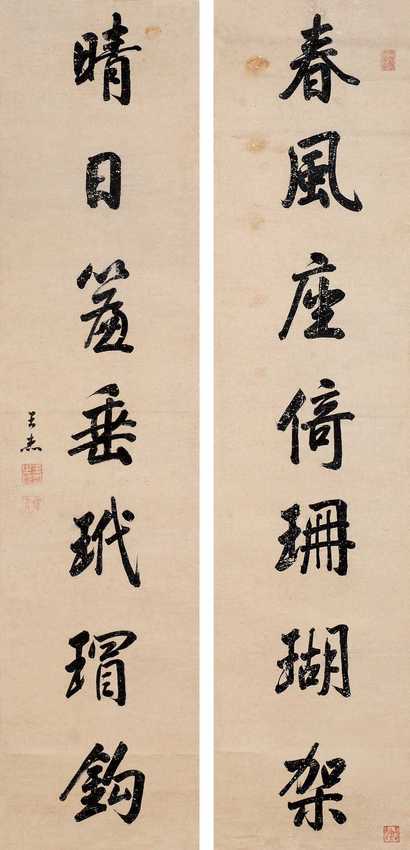 春風座倚珊瑚架
晴日簾垂玳瑁鈎
王杰